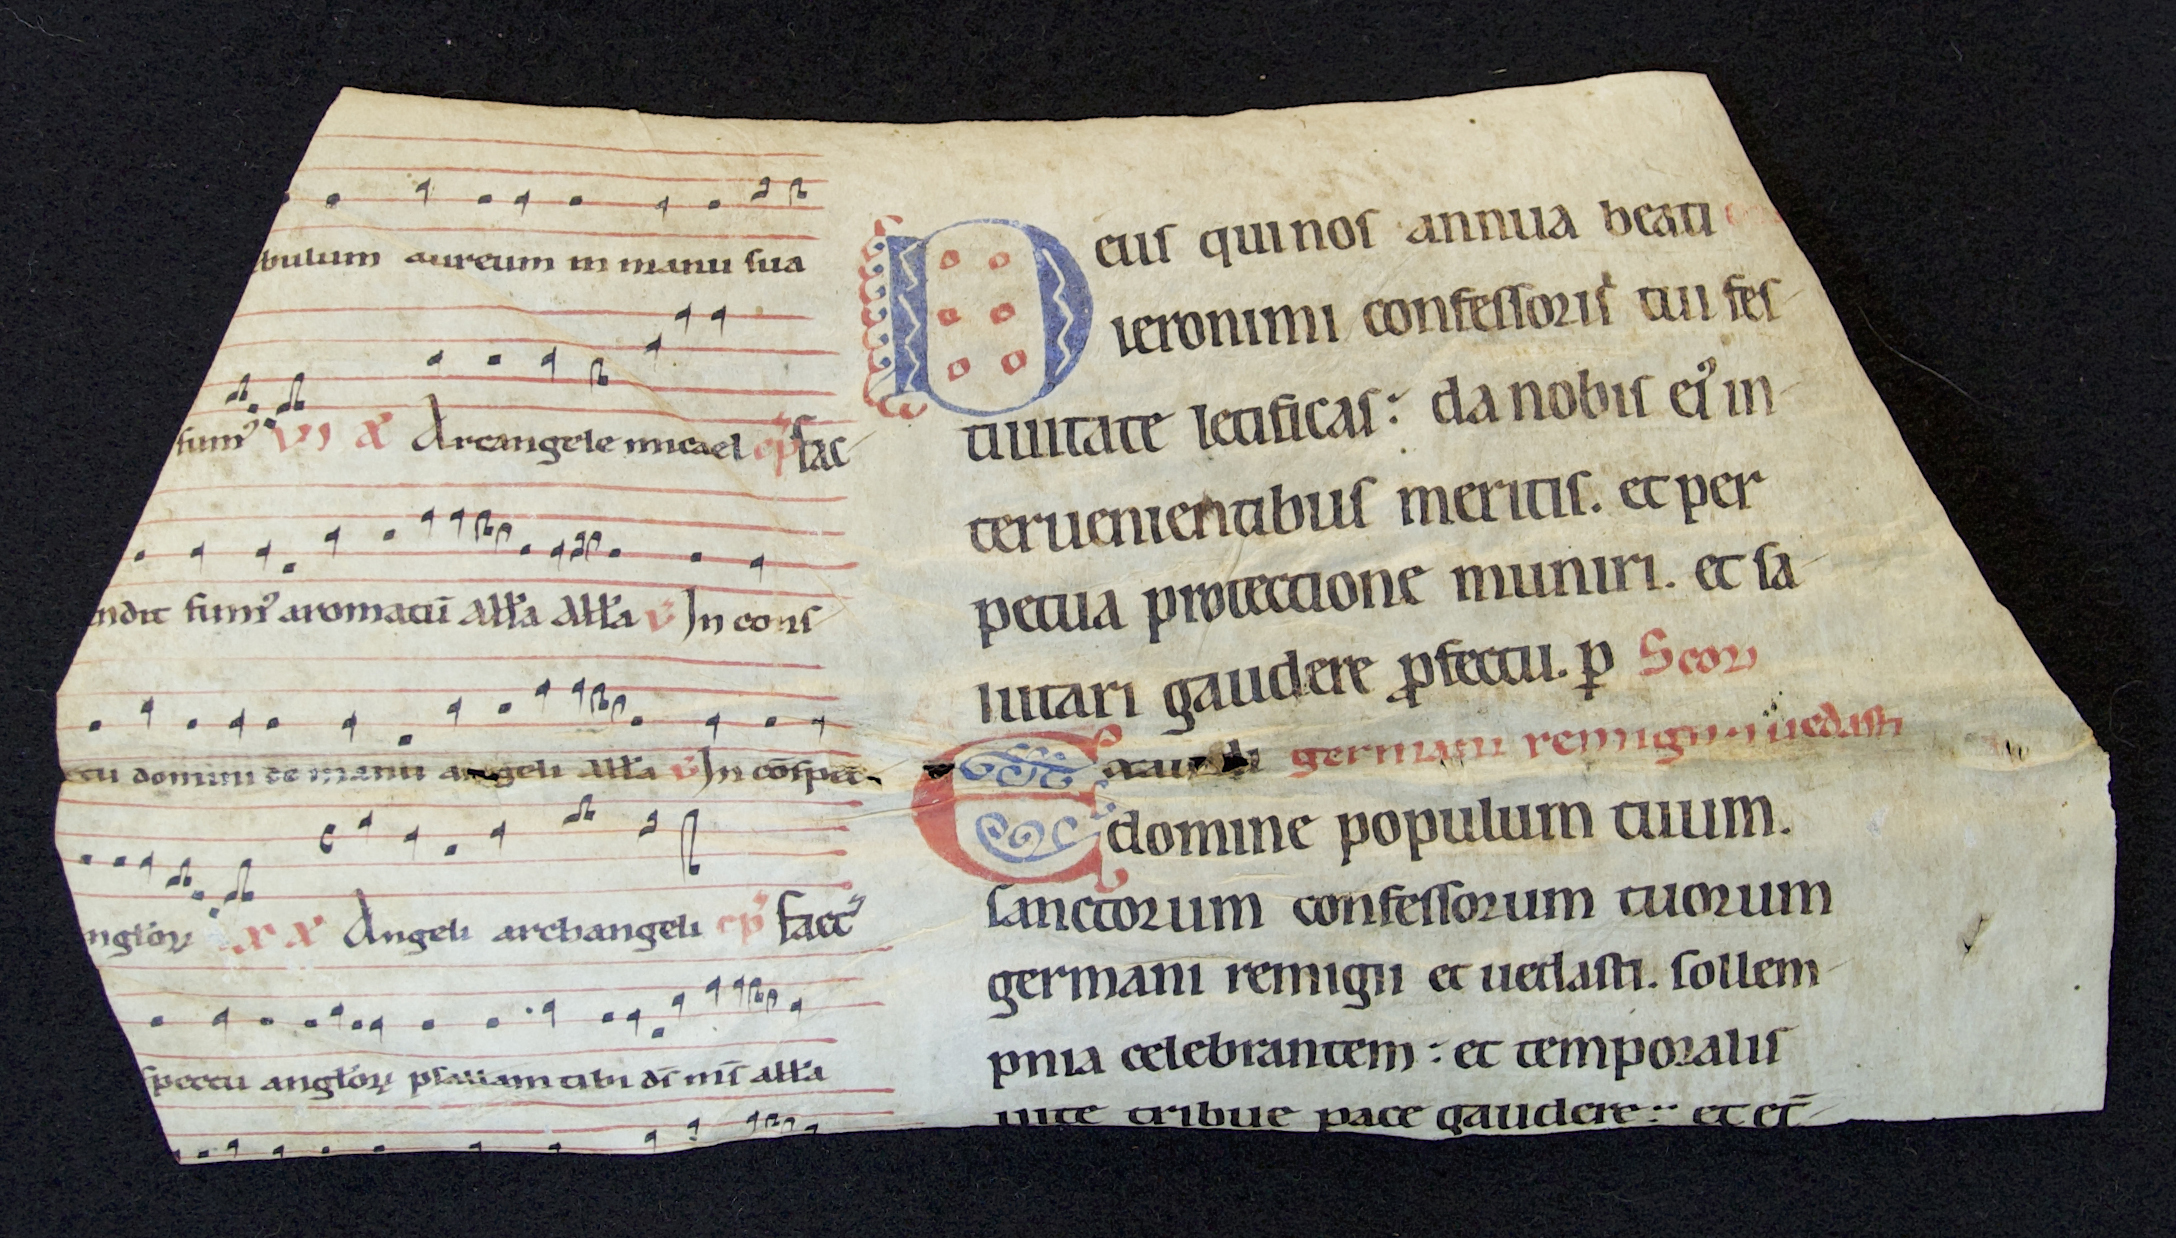 bulum aureum in manu sua
fum⁹ VI a᷒ Arcangele micael cp̄ fac
ndit fum⁹ aromatū all̄a all̄a v̄ In cons
tu domini de manu angeli all̄a v̄ In cōspec
ngl̄oꝝ a᷒ Angeli archangeli cp̄ facť
spectu angl̄oꝝ psallam tibi ds̄ ms̄ all̄a
Deus qui nos annua beati
ieronimi confessoris tui fes
tiuitate letificas: da nobis ei⁹ in
teruenientibus meritis. et per
petua protectione muniri. et sa
lutari gaudere ꝓfectu. p̱ Scoꝝ
Exaudi germani remigii ⁊ uedasti
domine populum tuum.
sanctorum confessorum tuorum
germani remigii et uedasti. sollem
pnia celebrantem: et temporalis
uite tribue pace gaudere: et et̄